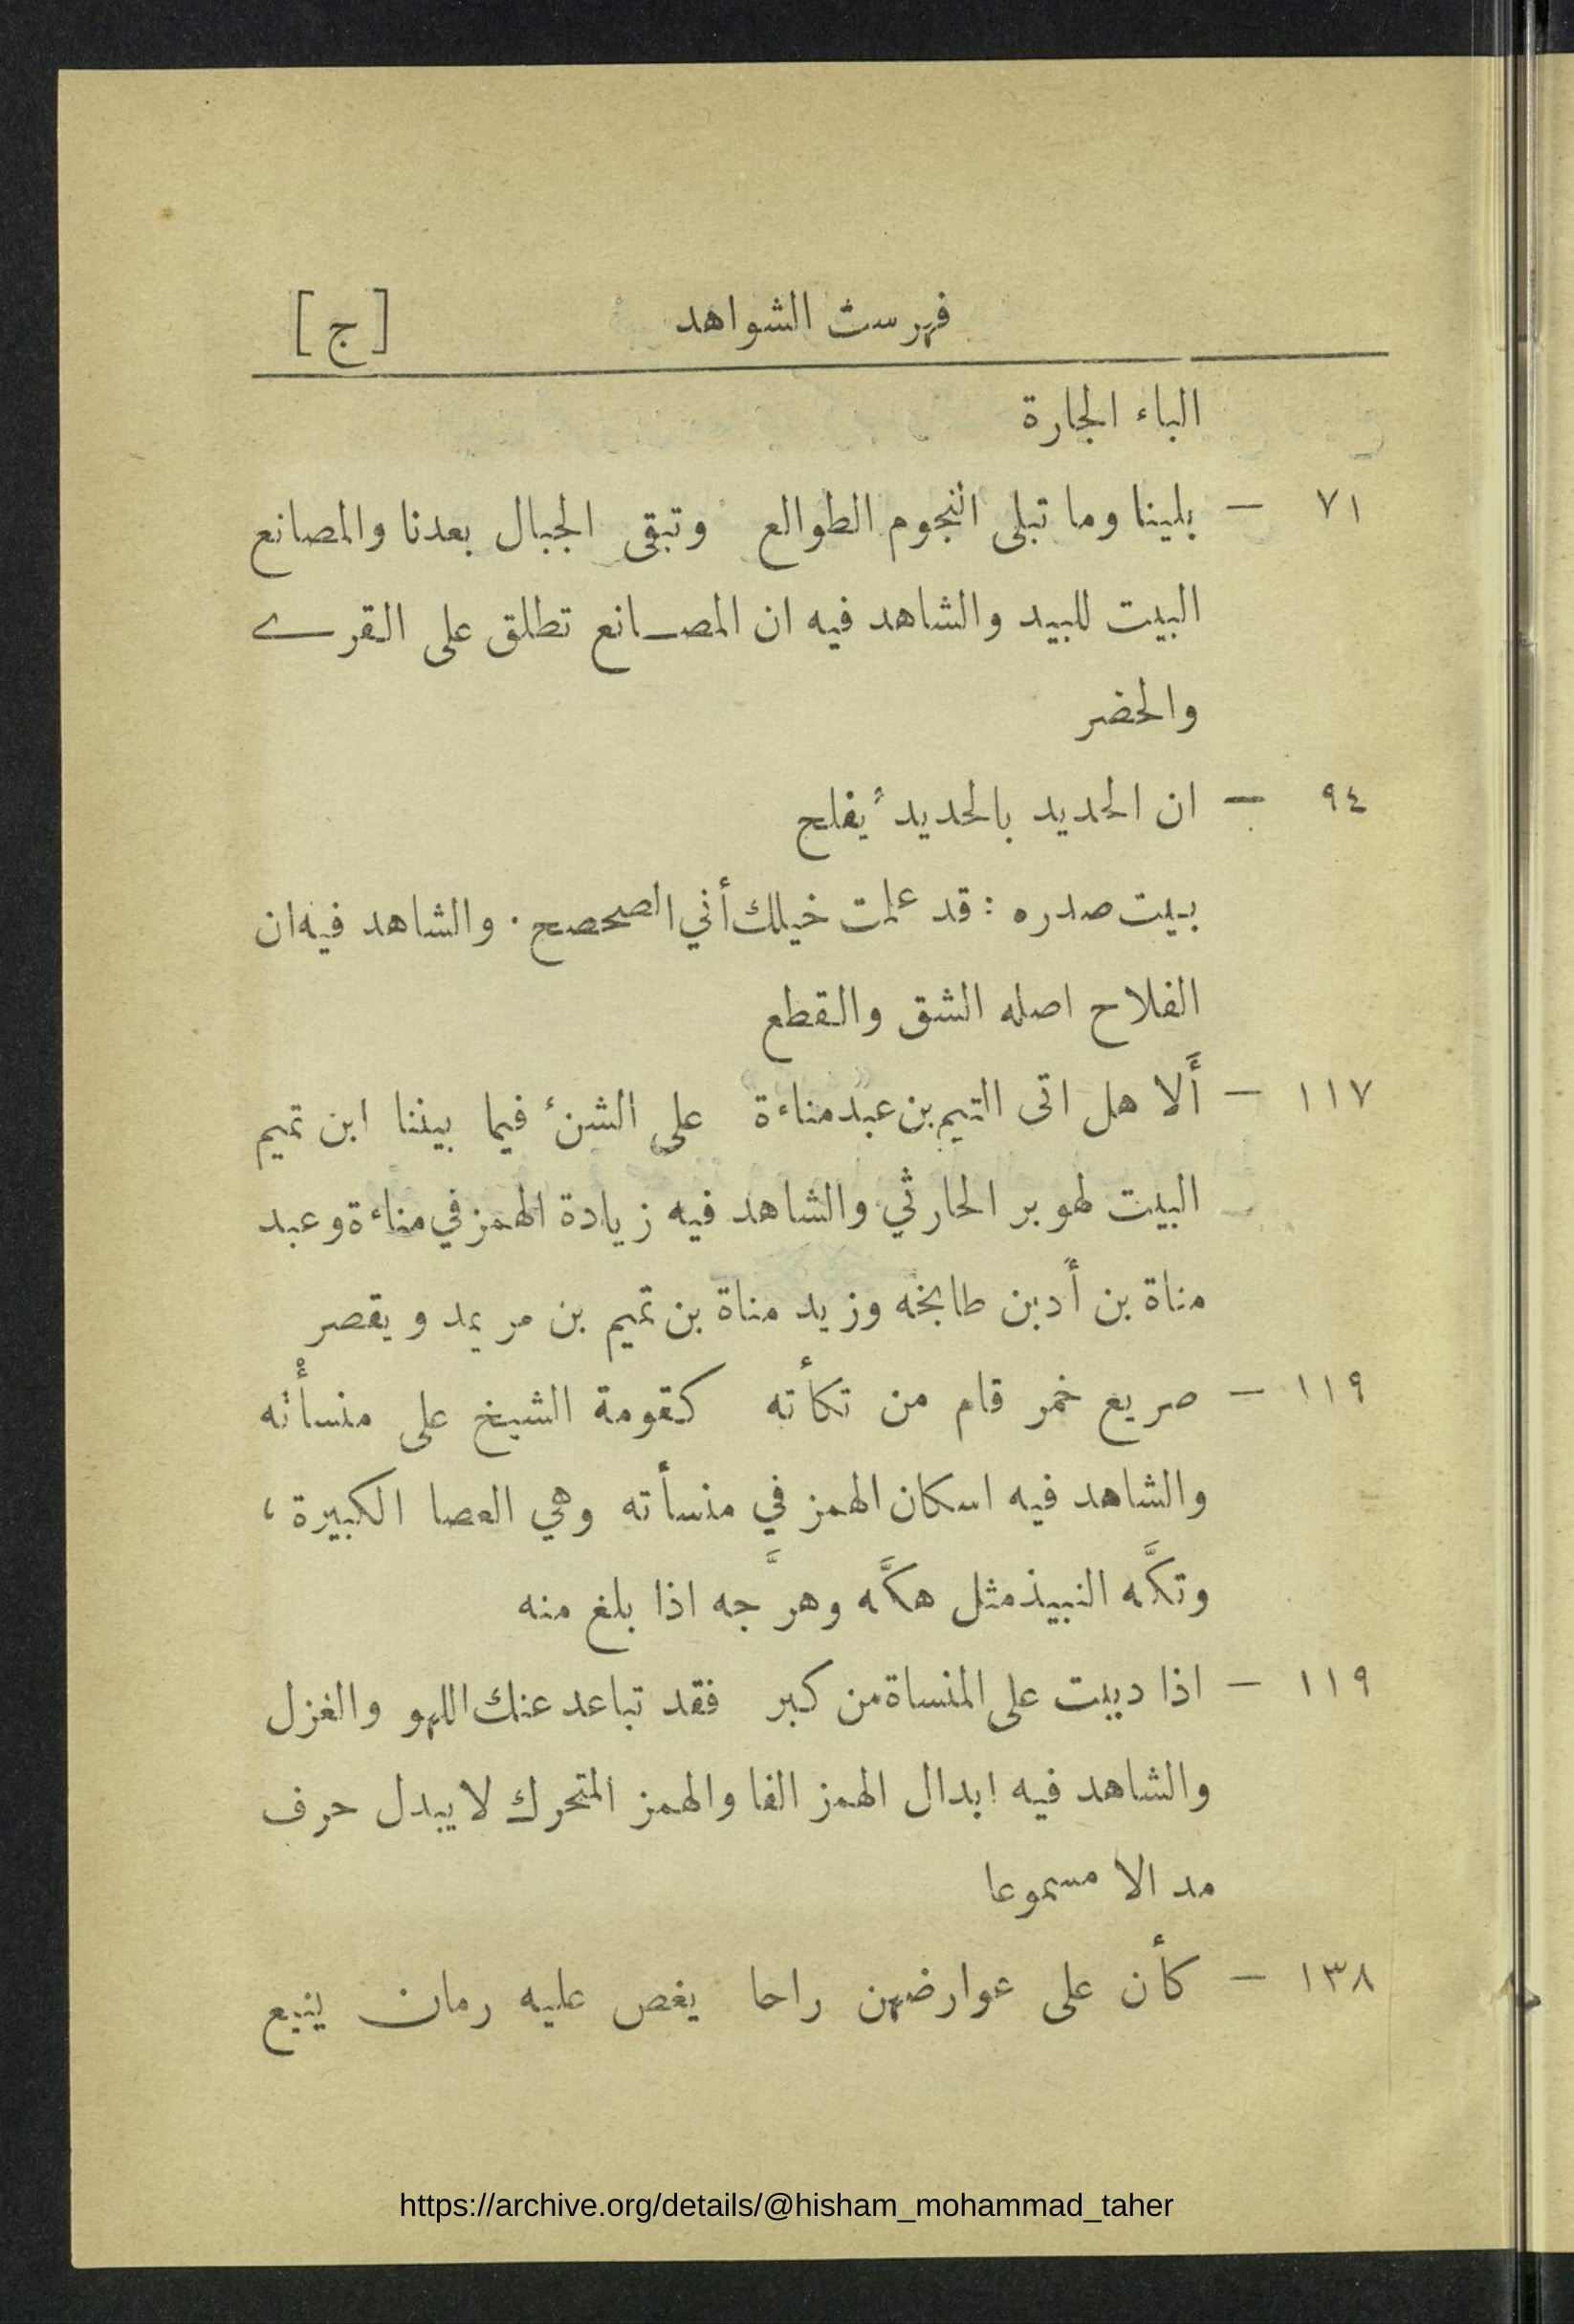 فهرست الشواهد [ج]
الباء الجارة
٧١ — بلينا وما تبلى النجوم الطوالع وتبقى الجبال بعدنا والمصانع
البيت للبيد والشاهد فيه ان المصانع تطلق على القرى
والحضر
٩٤ — ان الحديد بالحديد يُفلح
بيت صدره : قد علمت خيلك أني الصحصح . والشاهد فيه ان
الفلاح اصله الشق والقطع
١١٧ — أَلا هل اتى التيم بن عبد مناءة على الشنء فيما بيننا ابن تميم
البيت لهوبر الحارثي والشاهد فيه زيادة الهمز في مناءة وعبد
مناة بن أد بن طابخه وزيد مناة بن تميم بن مر يمد ويقصر
١١٩ — صريع خمر قام من تكأته كقومة الشيخ على منسأْته
والشاهد فيه اسكان الهمز في منسأته وهي العصا الكبيرة ،
وتكَّه النبيذ مثل هكَّه وهرَّجه اذا بلغ منه
١١٩ — اذا دببت على المنساة من كبر فقد تباعد عنك اللهو والغزل
والشاهد فيه ابدال الهمز الفا والهمز المتحرك لا يبدل حرف
مد الا مسموعا
١٣٨ — كأن على عوارضهن راحا يغص عليه رمان ينيع
https://archive.org/details/@hisham_mohammad_taher